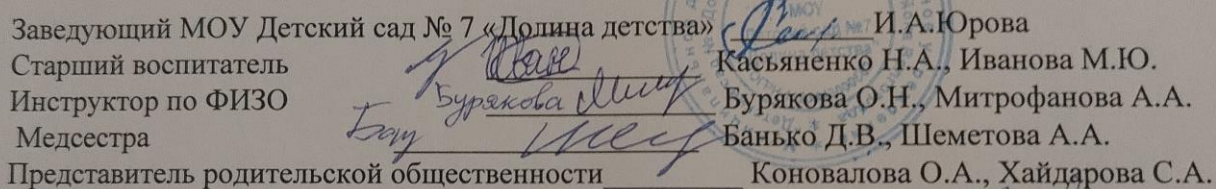 Заведующий МОУ Детский сад № 7 «Долина детства» И.А.Юрова
Старший воспитатель Касьяненко Н.А., Иванова М.Ю.
Инструктор по ФИЗО Бурякова Бурякова О.Н., Митрофанова А.А.
Медсестра Банько Д.В., Шеметова А.А.
Представитель родительской общественности Коновалова О.А., Хайдарова С.А.